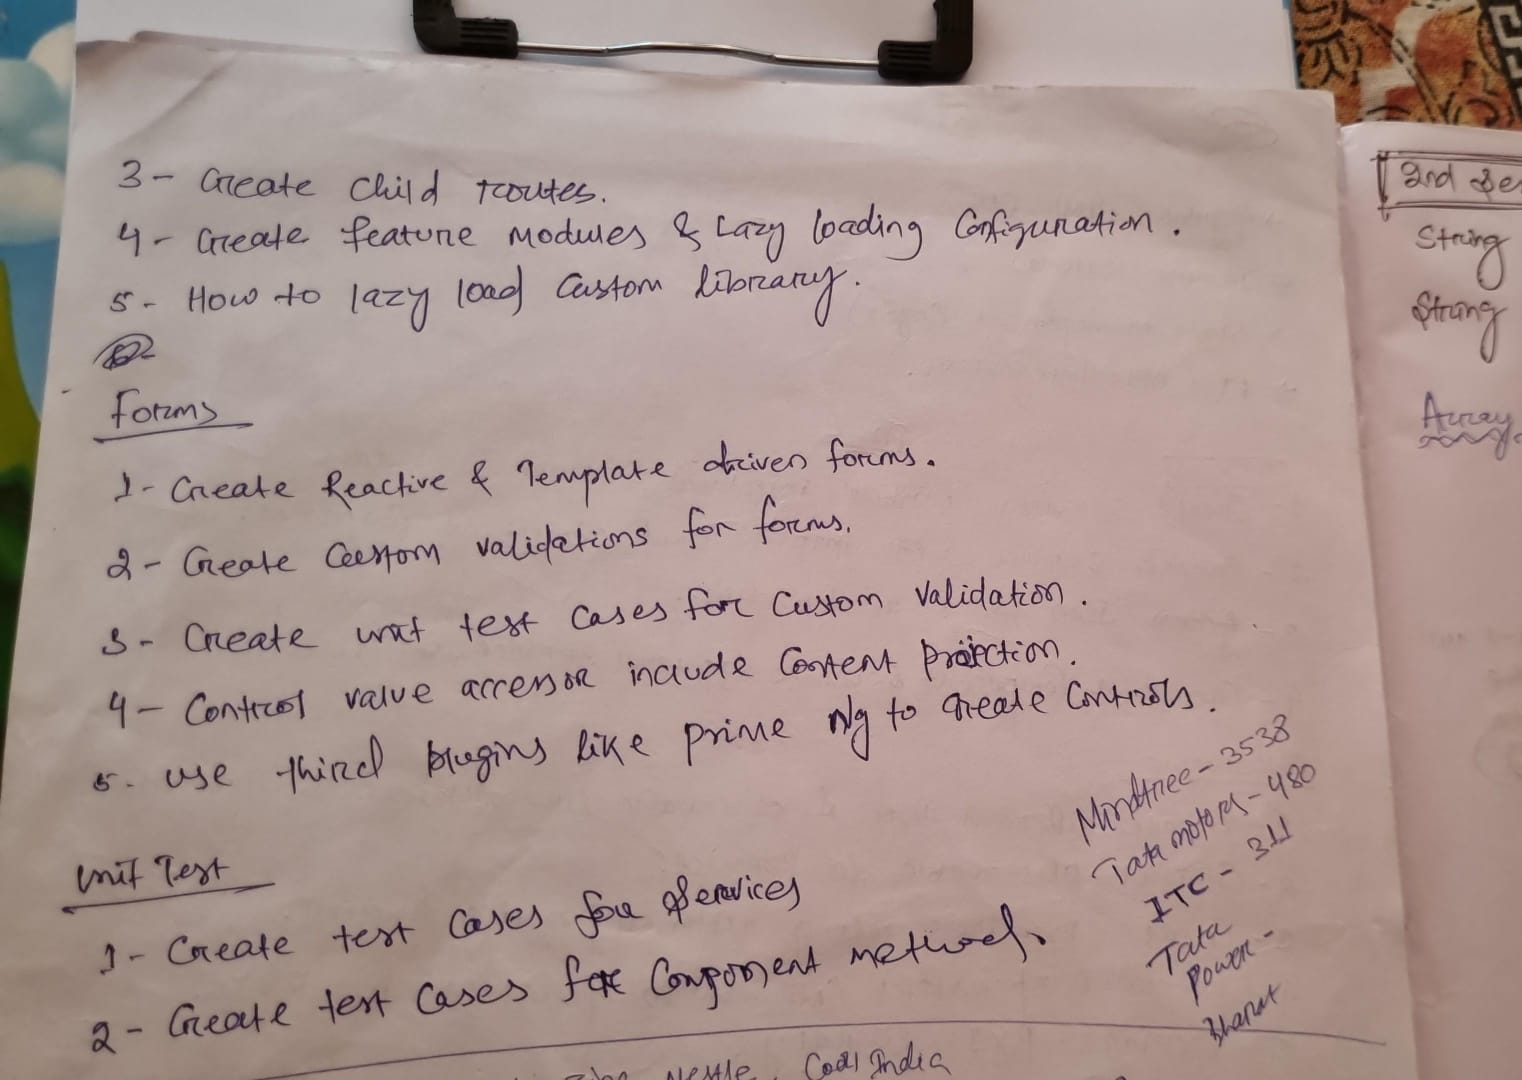 3- Create Child routes.
4- Create feature modules & Lazy loading Configuration.
5- How to lazy load Custom library.
Forms
1- Create Reactive & Template driven forms.
2- Create Custom validations for forms.
3- Create unit test cases for Custom Validation.
4- Control value accessor include Content Projection.
5. use third plugins like prime Ng to Create Controls.
Unit Test
1- Create test Cases for Services
2- Create test Cases for Component methods
Mindtree - 3538
Tata motors - 480
ITC - 311
Tata
Power -
Bharat
Nestle, Coal India
2nd Se
String
String
Array